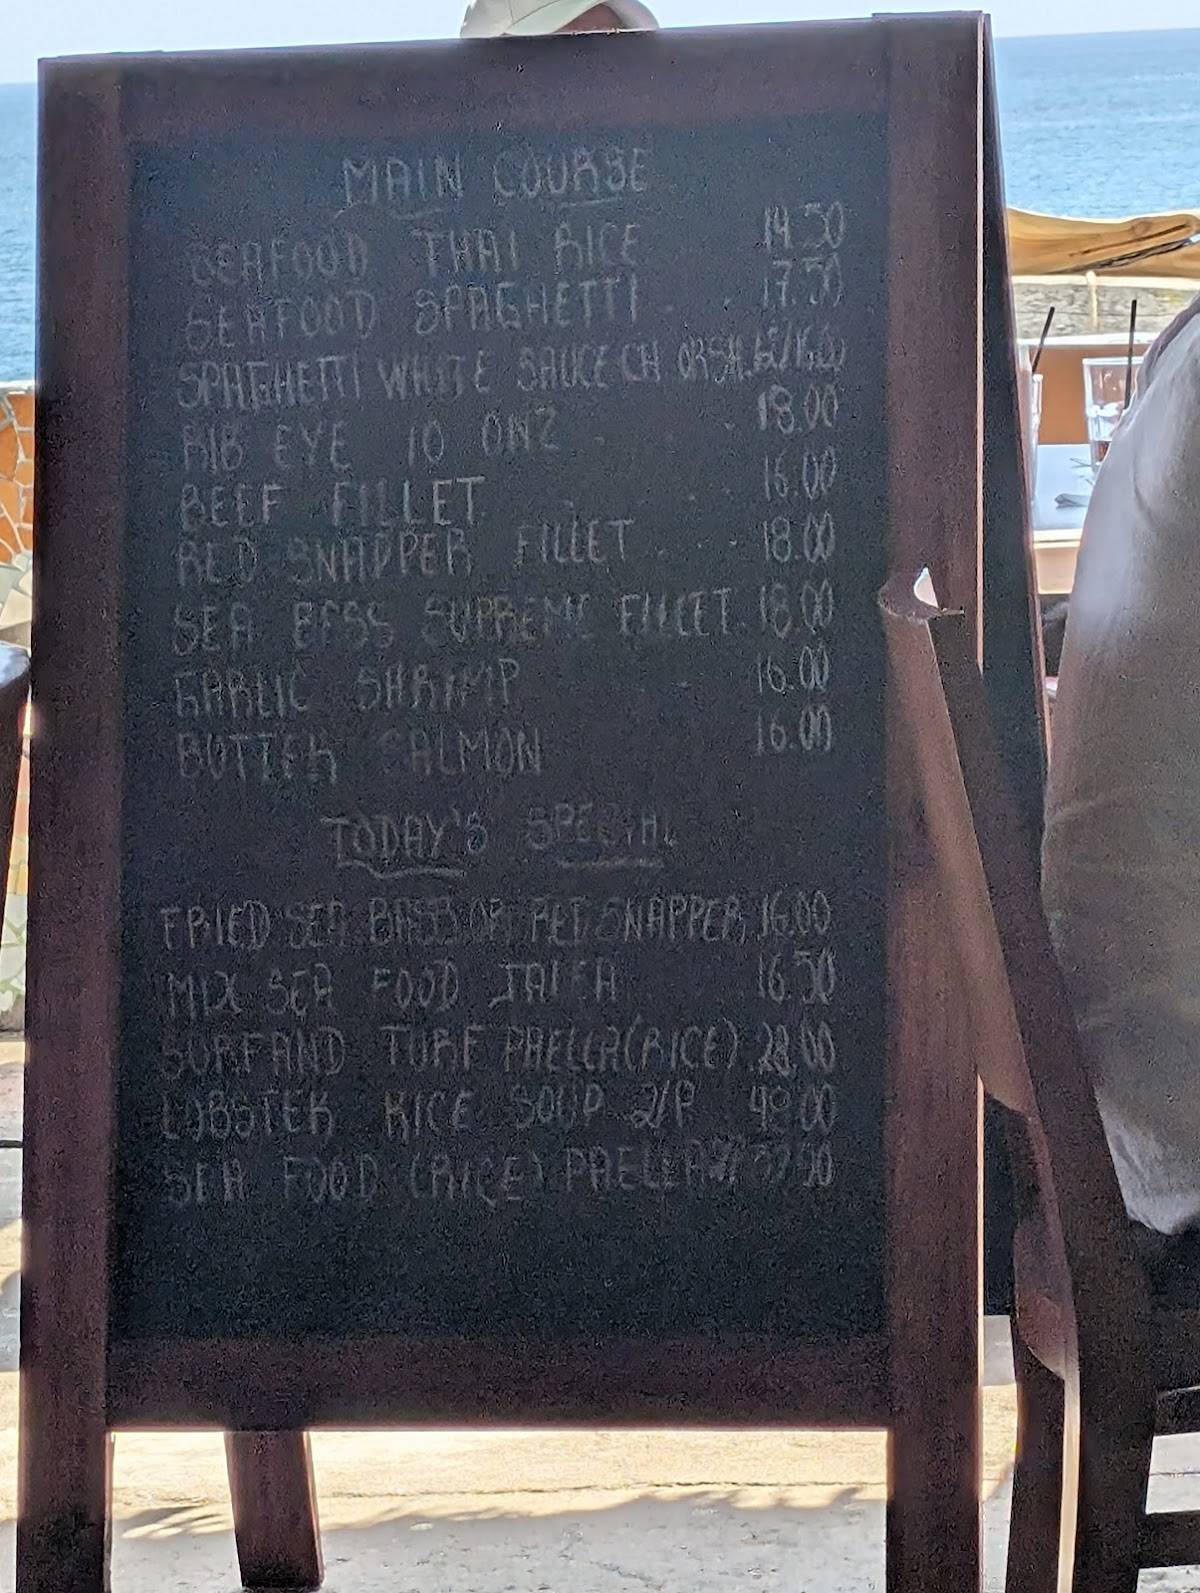 MAIN COURSE
SEAFOOD THAI RICE 14.50
SEAFOOD SPAGHETTI . . . 17.50
SPAGHETTI WHITE SAUCE CH OR SH.
RIB EYE 10 ONZ . . . 18.00
BEEF FILLET . . . 16.00
RED SNAPPER FILLET . . . 18.00
SEA BASS SUPREME FILLET. 18.00
GARLIC SHRIMP . . 16.00
BUTTER SALMON 16.00
TODAY'S SPECIAL
FRIED SEA BASS OR RED SNAPPER 16.00
MIX SEA FOOD JALEA 16.50
SURF AND TURF PAELLA (RICE). 28.00
LOBSTER RICE SOUP 2/P 49.00
SEA FOOD (RICE) PAELLA